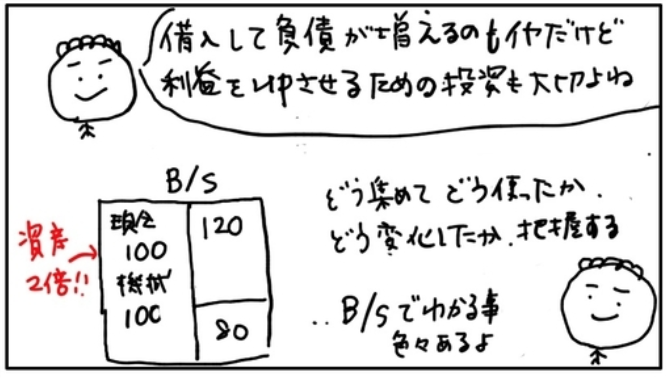 借入して負債が増えるのもイヤだけど
利益をUPさせるための投資も大切よね
B/S
現金
100
機械
100
120
80
資産
2倍!!
どう集めて どう使ったか、
どう変化したか、把握する
‥B/Sでわかる事
色々あるよ